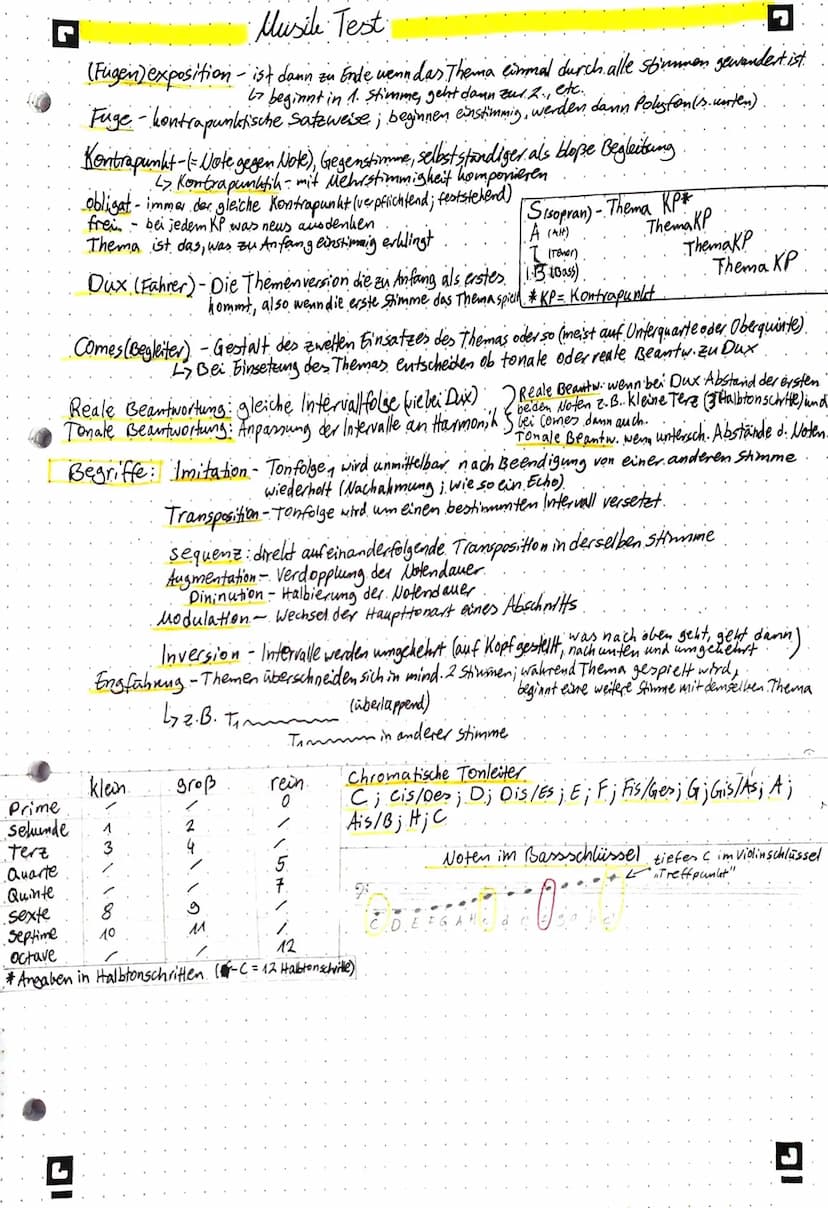 Musik Test
(Fugen)exposition - ist dann zu Ende wenn das Thema einmal durch alle Stimmen gewandert ist
↳ beginnt in 1. Stimme, geht dann zur 2., etc.
Fuge - kontrapunktische Satzweise; beginnen einstimmig, werden dann Polyfon (s. unten)
Kontrapunkt - (= Note gegen Note), Gegenstimme, selbstständiger als bloße Begleitung
↳ Kontrapunktik - mit Mehrstimmigkeit komponieren
obligat - immer der gleiche Kontrapunkt (verpflichtend; feststehend)
frei - bei jedem KP was neus ausdenken
Thema ist das, was zu Anfang einstimmig erklingt
S (Sopran) - Thema KP*
A (Alt) Thema KP
T (Tenor) Thema KP
B (Bass) Thema KP
* KP = Kontrapunkt
Dux (Führer) - Die Themenversion die zu Anfang als erstes
kommt, also wenn die erste Stimme das Thema spielt
Comes (Begleiter) - Gestalt des zweiten Einsatzes des Themas oder so (meist auf Unterquarte oder Oberquinte)
↳ Bei Einsetzung des Themas entscheiden ob tonale oder reale Beantw. zu Dux
Reale Beantwortung: gleiche Intervallfolge (wie bei Dux)
Tonale Beantwortung: Anpassung der Intervalle an Harmonik
Reale Beantw: wenn bei Dux Abstand der ersten
beiden Noten z.B. kleine Terz (3 Halbtonschritte) und
bei Comes dann auch.
Tonale Beantw. wenn untersch. Abstände d. Noten
Begriffe: Imitation - Tonfolge, wird unmittelbar nach Beendigung von einer anderen Stimme
wiederholt (Nachahmung; wie so ein Echo)
Transposition - Tonfolge wird um einen bestimmten Intervall versetzt
Sequenz: direkt aufeinanderfolgende Transposition in derselben Stimme
Augmentation - Verdopplung der Notendauer
Diminution - Halbierung der Notendauer
Modulation - Wechsel der Haupttonart eines Abschnitts
Inversion - Intervalle werden umgekehrt (auf Kopf gestellt, was nach oben geht, geht dann
nach unten und umgekehrt)
Engführung - Themen überschneiden sich in mind. 2 Stimmen; während Thema gespielt wird,
beginnt eine weitere Stimme mit demselben Thema
(überlappend)
↳ z.B. T1
T1 in anderer Stimme
klein groß rein
Prime / / 0
Sekunde 1 2 /
Terz 3 4 /
Quarte / / 5
Quinte / / 7
Sexte 8 9 /
Septime 10 11 /
Octave / / 12
* Angaben in Halbtonschritten (C-C = 12 Halbtonschritte)
Chromatische Tonleiter
C; Cis/Des; D; Dis/Es; E; F; Fis/Ges; G; Gis/As; A;
Ais/B; H; C
Noten im Bassschlüssel
tiefes C im Violinschlüssel
"Treffpunkt"
C D E F G A H c d e f g a h c'